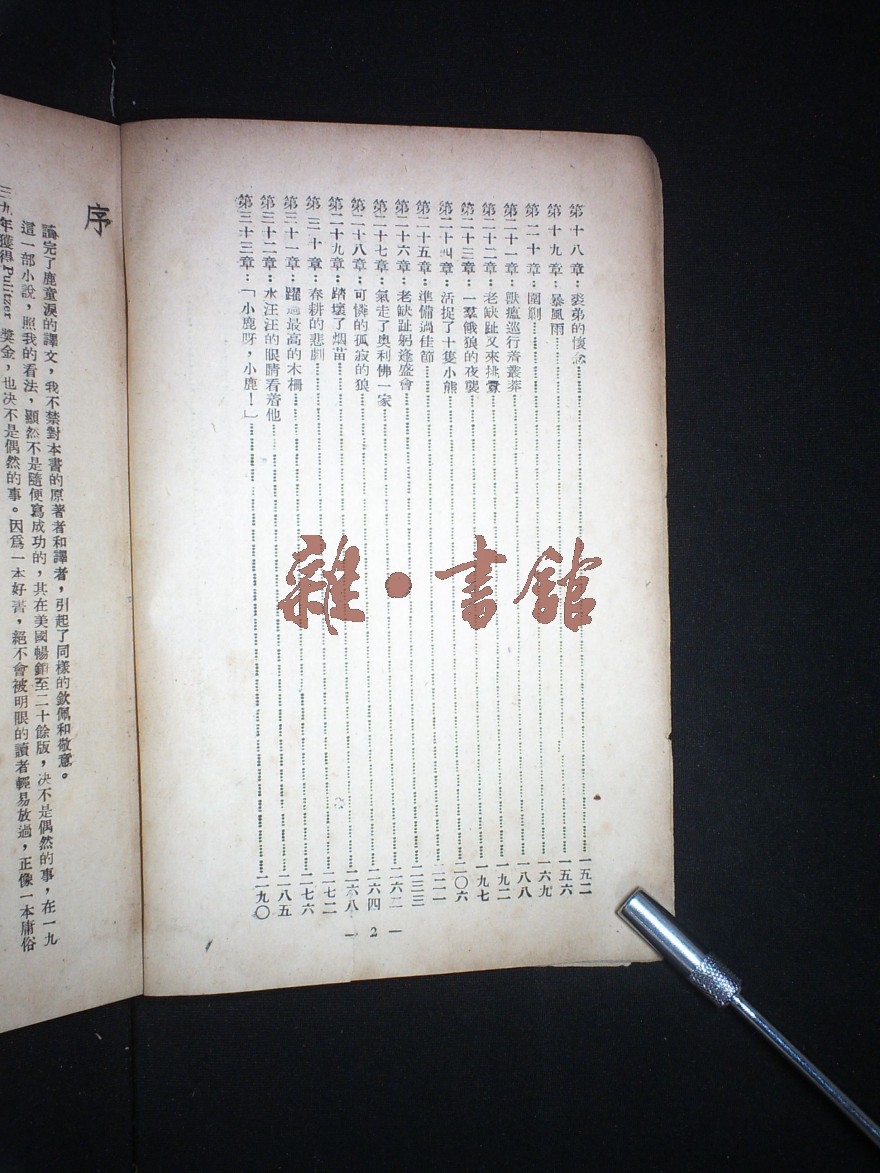 第十八章：裘弟的懷念……一五二
第十九章：暴風雨……一五六
第二十章：圍剿……一六九
第二十一章：獸瘟巡行着叢莽……一八八
第二十二章：老缺趾又來挑釁……一九二
第二十三章：一羣餓狼的夜襲……一九七
第二十四章：活捉了十隻小熊……二〇六
第二十五章：準備過佳節……
第二十六章：老缺趾躬逢盛會……二三三
第二十七章：氣走了奧利佛一家……二六二
第二十八章：可憐的孤寂的狼……二六四
第二十九章：踏壞了烟苗……二六八
第三十章：春耕的悲劇……二七二
第三十一章：躍過最高的木柵……二七六
第三十二章：水汪汪的眼睛看着他……二八五
第三十三章：「小鹿呀，小鹿！」……二九〇
— 2 —
雜·書館
序
讀完了鹿童淚的譯文，我不禁對本書的原著者和譯者，引起了同樣的欽佩和敬意。
這一部小說，照我的看法，顯然不是隨便寫成功的，其在美國暢銷至二十餘版，决不是偶然的事，在一九
三九年獲得Pulitzer 獎金，也决不是偶然的事。因爲一本好書，絕不會被明眼的讀者輕易放過，正像一本庸俗